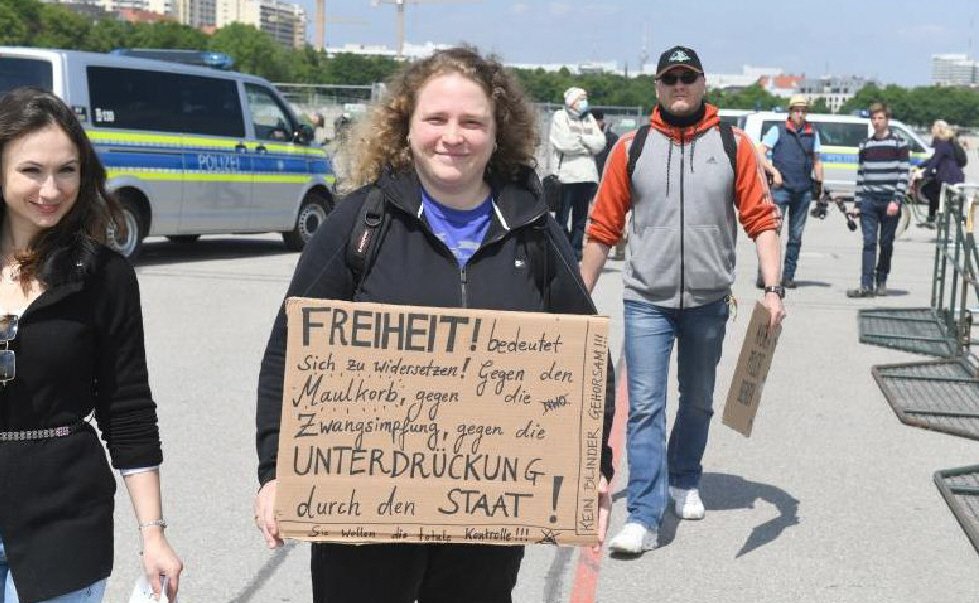 POLIZEI
adidas
FREIHEIT! bedeutet
Sich zu widersetzen! Gegen den
Maulkorb, gegen die NWO
Zwangsimpfung, gegen die
UNTERDRÜCKUNG
durch den STAAT!
Sie wollen die totale Kontrolle!!!
KEIN BLINDER GEHORSAM!!!